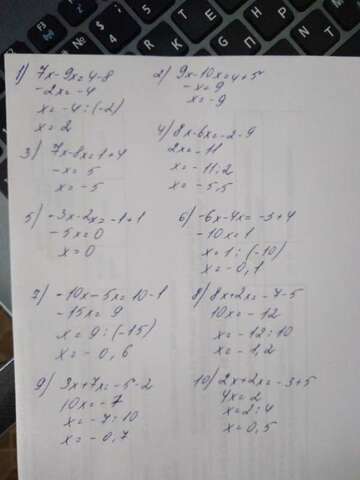 1) 7x-9x=4-8
-2x=-4
x=-4:(-2)
x=2
2) 9x-10x=4+5
-x=9
x=-9
3) 7x-8x=1+4
-x=5
x=-5
4) 8x-6x=-2-9
2x=-11
x=-11:2
x=-5.5
5) -3x-2x=-1+1
-5x=0
x=0
6) -6x-4x=-3+4
-10x=1
x=1:(-10)
x=-0,1
7) -10x-5x=10-1
-15x=9
x=9:(-15)
x=-0,6
8) 8x+2x=-7-5
10x=-12
x=-12:10
x=-1,2
9) 3x+7x=-5-2
10x=-7
x=-7:10
x=-0,7
10) 2x+2x=-3+5
4x=2
x=2:4
x=0,5